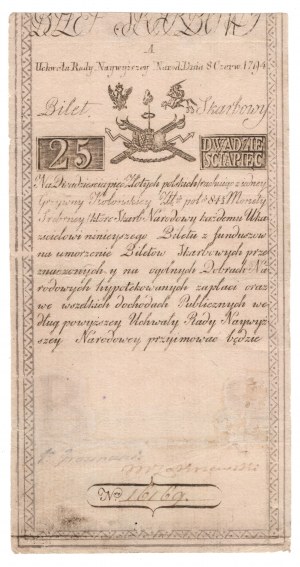 BILET SKARBOWY
A
Uchwała Rady Naywyższey Narod. Dnia 8 Czerw. 1794
Bilet Skarbowy
25 DWADZIEŚCIA PIĘC
Na Dwadzieścia pięc Złotych polskich rachuiąc z iedney
Grzywny Kolońskiey Zł. pol. 84½ Monety
Srebrney które Skarb Narodowy każdemu Oka-
zicielowi ninieyszego Biletu z funduszow
na umorzenie Biletów Skarbowych prze-
znaczonych y na ogulnych Dobrach Na-
rodowych hypotekowanych zapłaci oraz
we wszelkich dochodach Publicznych we-
dług powyższey Uchwały Rady Naywyż-
szey Narodowey przyimować będzie
No 16169.